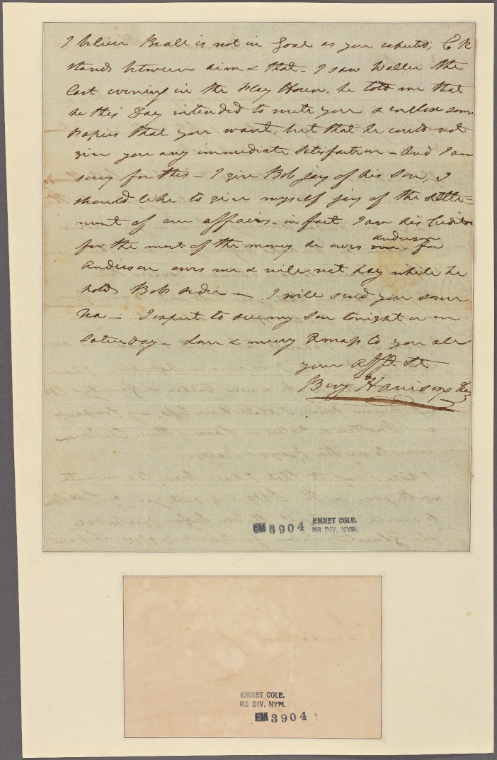 I believe Beall is not in Goal as you expected, C R
stands between him & that - I saw Waller the
last evening in the Play House, he told me that
he this Day intended to write you & enclose some
Papers that you want, but that he could not
give you any immediate Satisfaction - And I am
sorry for this - I give Bob joy of his Son, I
should like to give myself joy of the settle-
ment of our affairs - in fact I am his Creditor
for the most of the money he owes Anderson, for
Anderson owes me & will not pay while he
holds Bobs order - I will send you some
Tea - I expect to see my Son tonight or on
Saturday - Love & merry Xmas to you all
your Aff
Benj Harrison
EM 3904
EMMET COLL.
MS DIV. NYPL
EMMET COLL.
MS DIV. NYPL
EM 3904